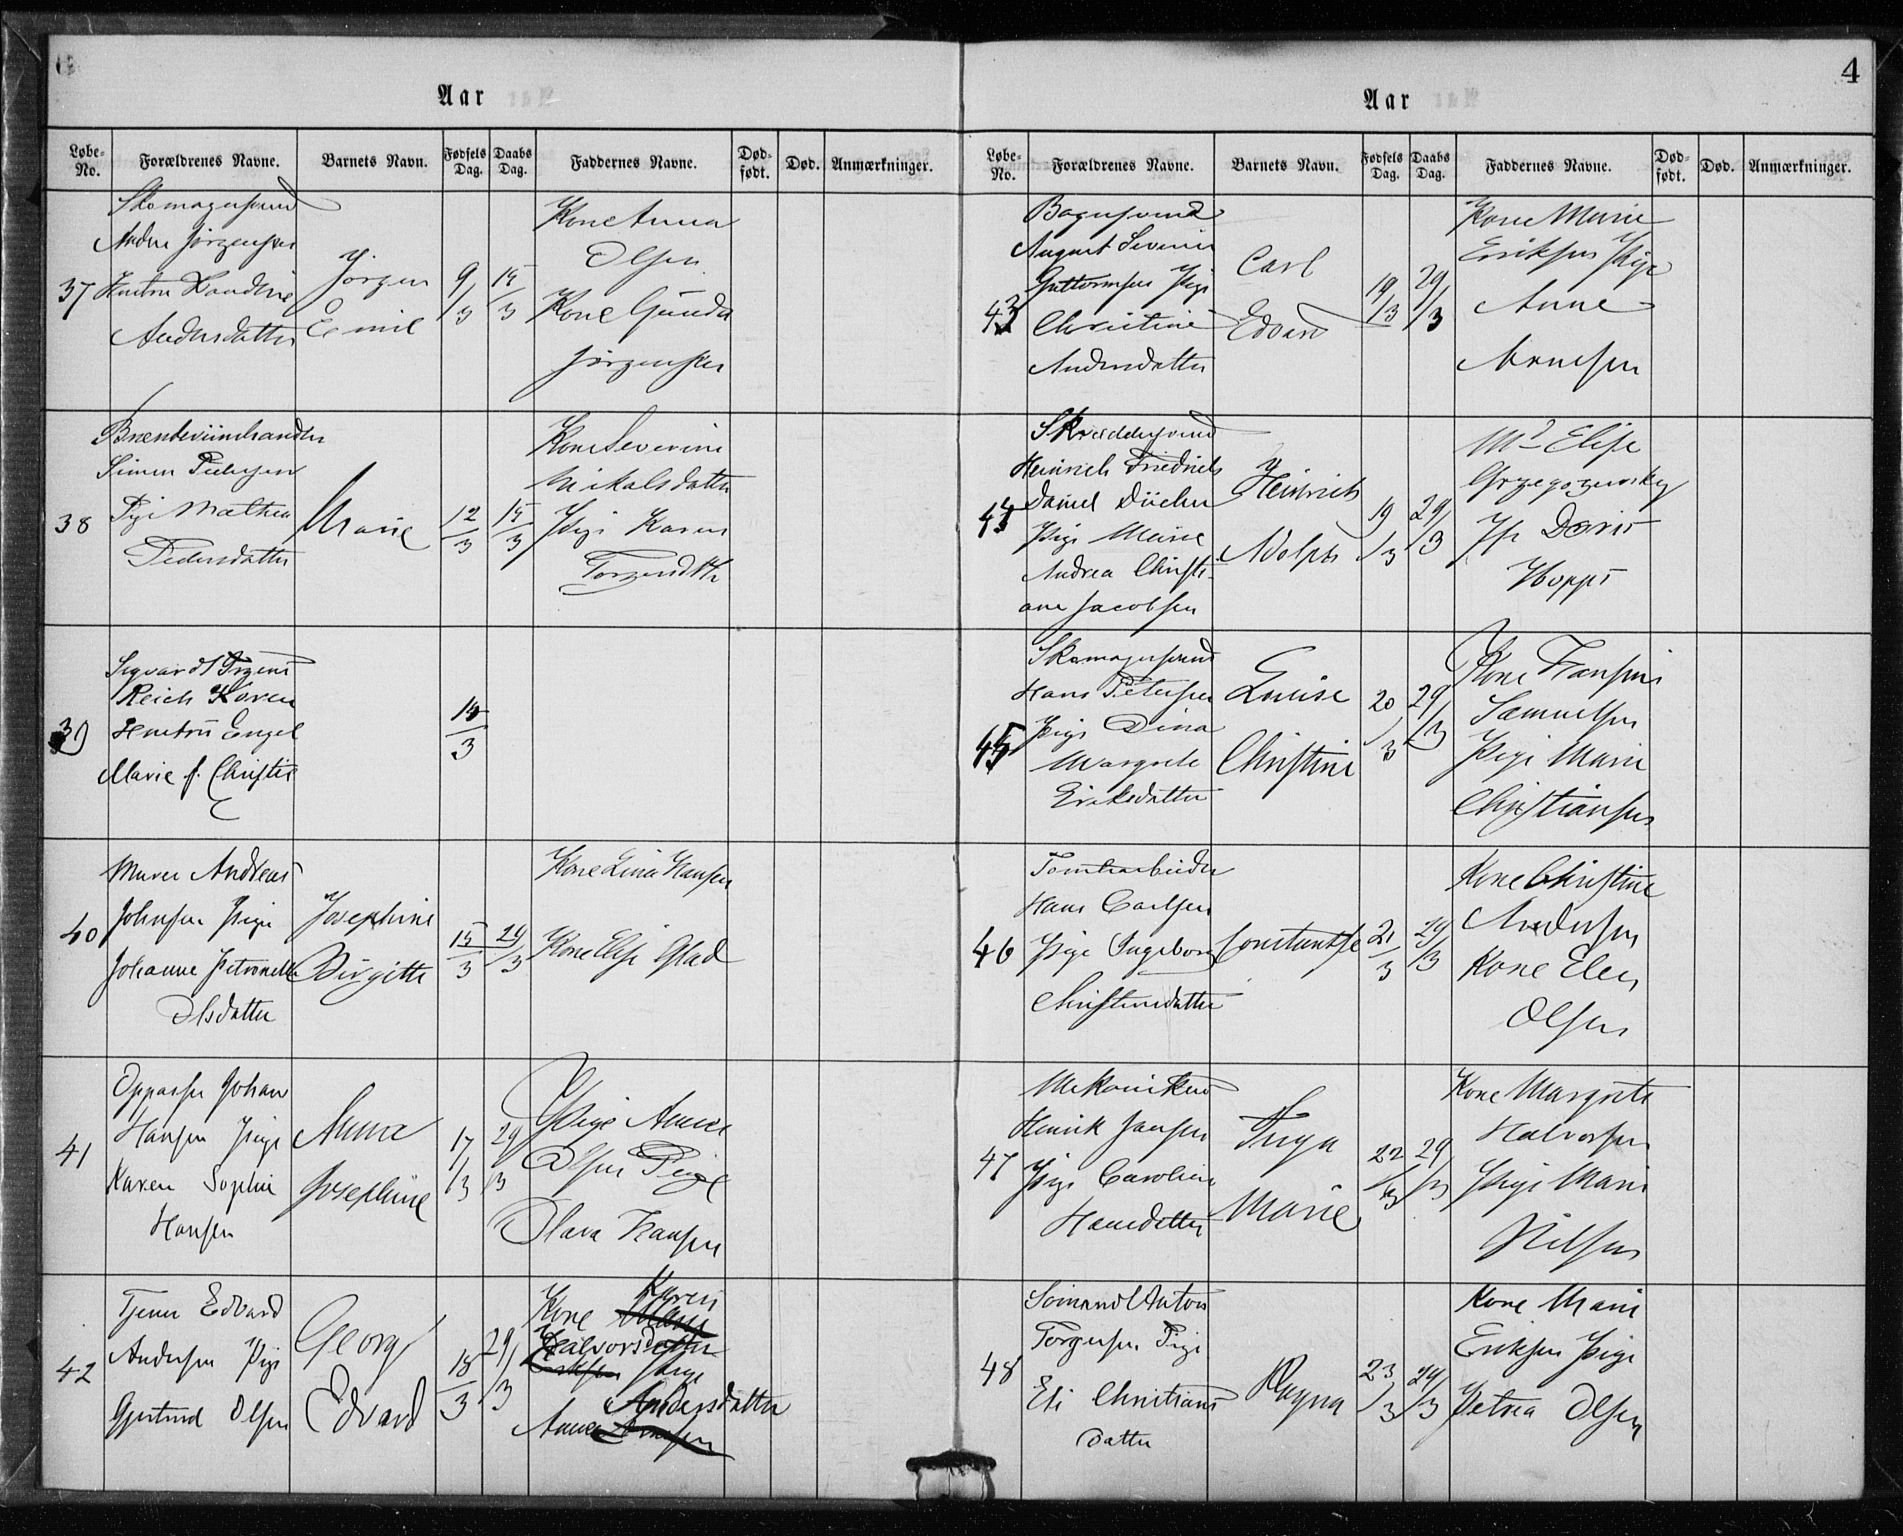 Aar
Løbe-No. Forældrenes Navne. Barnets Navn. Fødsels Dag. Daabs Dag. Faddernes Navne. Død-født. Død. Anmærkninger.
37
Skomagersvend
Andrea Jørgensen
Andersdatter
Jørgen
Emil
9/3
15/3
Kone Anna
Olsen
Kone Gunda
Jørgensen
38
Brændeviinshandler
Simen Pedersen
Pige Mathea
Pedersdatter
Marie
12/3
15/3
Kone Severine
Nikalsdatter
Pige Karen
39
Reich Karen
Engel
Marie f. Christie
14/3
40
Murer Andreas
Johnsen Pige
Johanne Petronelle
Olsdatter
Josephine
Birgitte
15/3
29/3
Kone Lina Hansen
Kone Elise Glad
41
Oppasser Johan
Hansen Pige
Karen Sophie
Hansen
Anna
Josephine
17/3
29/3
Pige Anna
Olsen Pige
Olava Hansen
42
Tjener Edvard
Andersen Pige
Gjertrud Olsen
Georg
Edvard
18/3
29/3
Karen
Kone
Halvorsdatter
Pige
Andersdatter
Anna
4
Aar
Løbe-No. Forældrenes Navne. Barnets Navn. Fødsels Dag. Daabs Dag. Faddernes Navne. Død-født. Død. Anmærkninger.
43
Bagersvend
August Severin
Guttormsen Pige
Christine
Andersdatter
Carl
Edvard
19/3
29/3
Kone Marie
Eriksen Pige
Anne
Arnesen
44
Skreddersvend
Heinrich Friedrich
Daniel
Pige Marie
Andrea Christi-
ane Jacobsen
Heinrich
Adolph
19/3
29/3
Elise
Doris
Hoppe
45
Skomagersvend
Hans Petersen
Pige Dina
Margrete
Eriksdatter
Louise
Christine
20/3
29/3
Kone Hansine
Samuelsen
Pige Marie
Christiansen
46
Tomtearbeider
Hans Carlsen
Pige Ingeborg
Christensdatter
Constantse
21/3
29/3
Kone Christine
Andersen
Kone Elen
Olsen
47
Mekanikus
Henrik Jansen
Pige Caroline
Hansdatter
Inga
Marie
22/3
29/3
Kone Margrete
Halvorsen
Pige Marie
Nilsen
48
Sømand Anton
Torgersen Pige
Eli Christians
datter
Ragna
23/3
29/3
Kone Marie
Eriksen Pige
Petrea Olsen